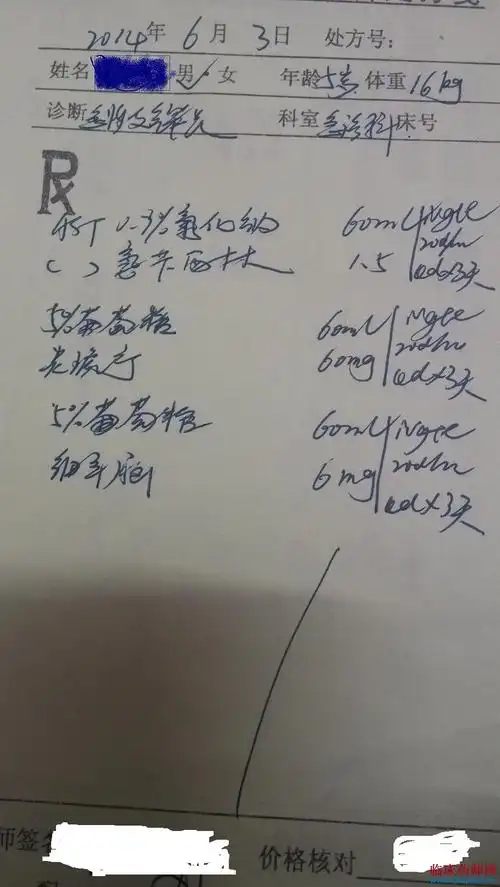 2014年 6月 3日 处方号:
姓名 男✓女 年龄5岁 体重16kg
诊断 急性支气管炎 科室急诊科床号
Rx
AST 0.9%氯化钠 60ml ivgtt
( ) 氨苄西林 1.5 20d/m
qd×3天
5%葡萄糖 60ml ivgtt
炎琥宁 60mg 20d/m
qd×3天
5%葡萄糖 60ml ivgtt
细辛脑 6mg 20d/m
qd×3天
师签名
价格核对
临床药师网